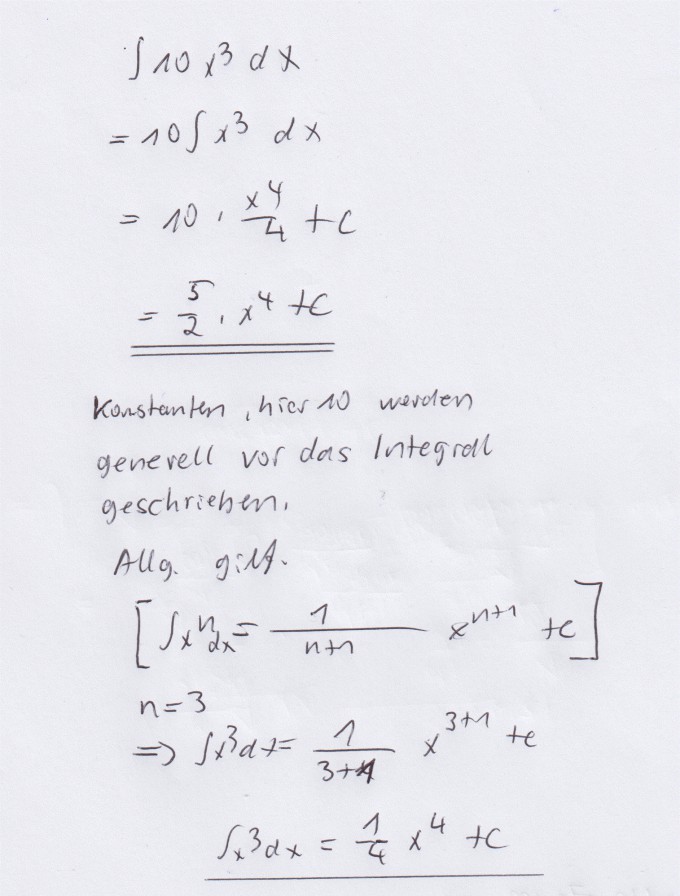 ∫ 10 x³ dx
= 10 ∫ x³ dx
= 10 · x⁴/4 + C
= 5/2 · x⁴ + C
Konstanten, hier 10 werden
generell vor das Integral
geschrieben.
Allg. gilt.
[∫xⁿdx = 1/(n+1) xⁿ⁺¹ + c]
n = 3
=> ∫x³dx = 1/(3+1) x³⁺¹ + c
∫x³dx = 1/4 x⁴ + c